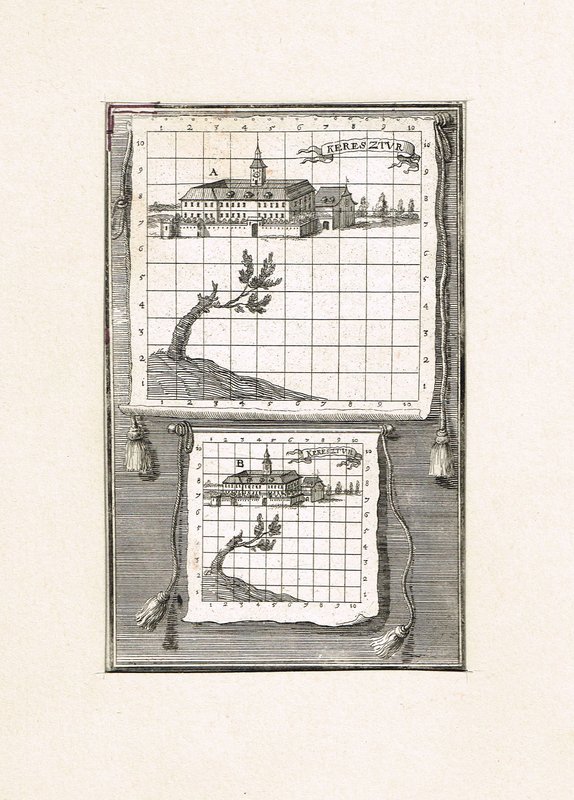 1 2 3 4 5 6 7 8 9 10
10
9
8
7
6
5
4
3
2
1
KERESZTUR
A
10
9
8
7
6
5
4
3
2
1
1 2 3 4 5 6 7 8 9 10
1 2 3 4 5 6 7 8 9 10
10
9
8
7
6
5
4
3
2
1
KERESZTUR
B
10
9
8
7
6
5
4
3
2
1
1 2 3 4 5 6 7 8 9 10